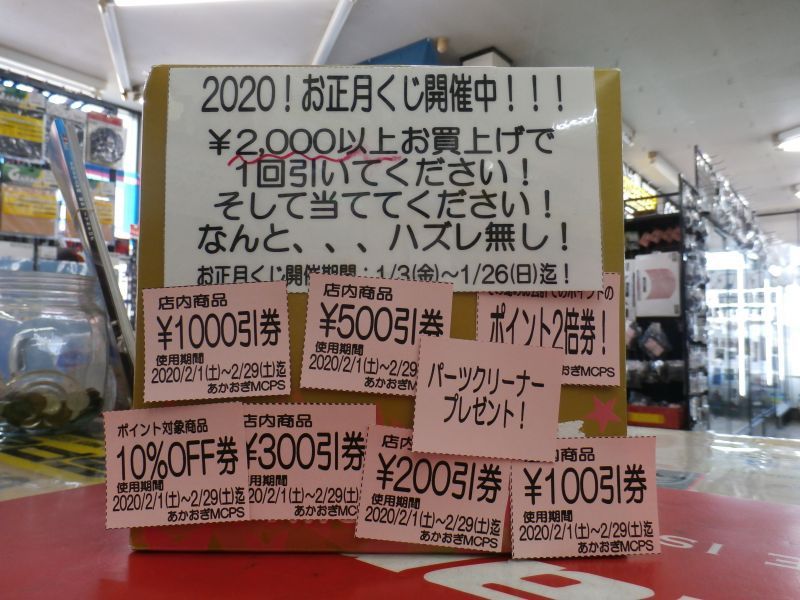 2020！お正月くじ開催中！！！
￥2,000以上お買上げで
1回引いてください！
そして当ててください！
なんと、、、ハズレ無し！
お正月くじ開催期間：1/3(金)～1/26(日)迄！
店内商品
¥1000引券
使用期間
2020/2/1(土)～2/29(土)迄
あかおぎMCPS
店内商品
¥500引券
使用期間
2020/2/1(土)～2/29(土)迄
あかおぎMCPS
ポイントの
ポイント2倍券！
2020/2/1(土)～2/29(土)迄
あかおぎMCPS
パーツクリーナー
プレゼント！
ポイント対象商品
10%OFF券
使用期間
2020/2/1(土)～2/29(土)迄
あかおぎMCPS
店内商品
¥300引券
使用期間
20/2/1(土)～2/29(土)迄
あかおぎMCPS
店内
¥200引券
使用期間
2020/2/1(土)～2/29(土)迄
あかおぎMCPS
商品
¥100引券
使用期間
2020/2/1(土)～2/29(土)迄
あかおぎMCPS